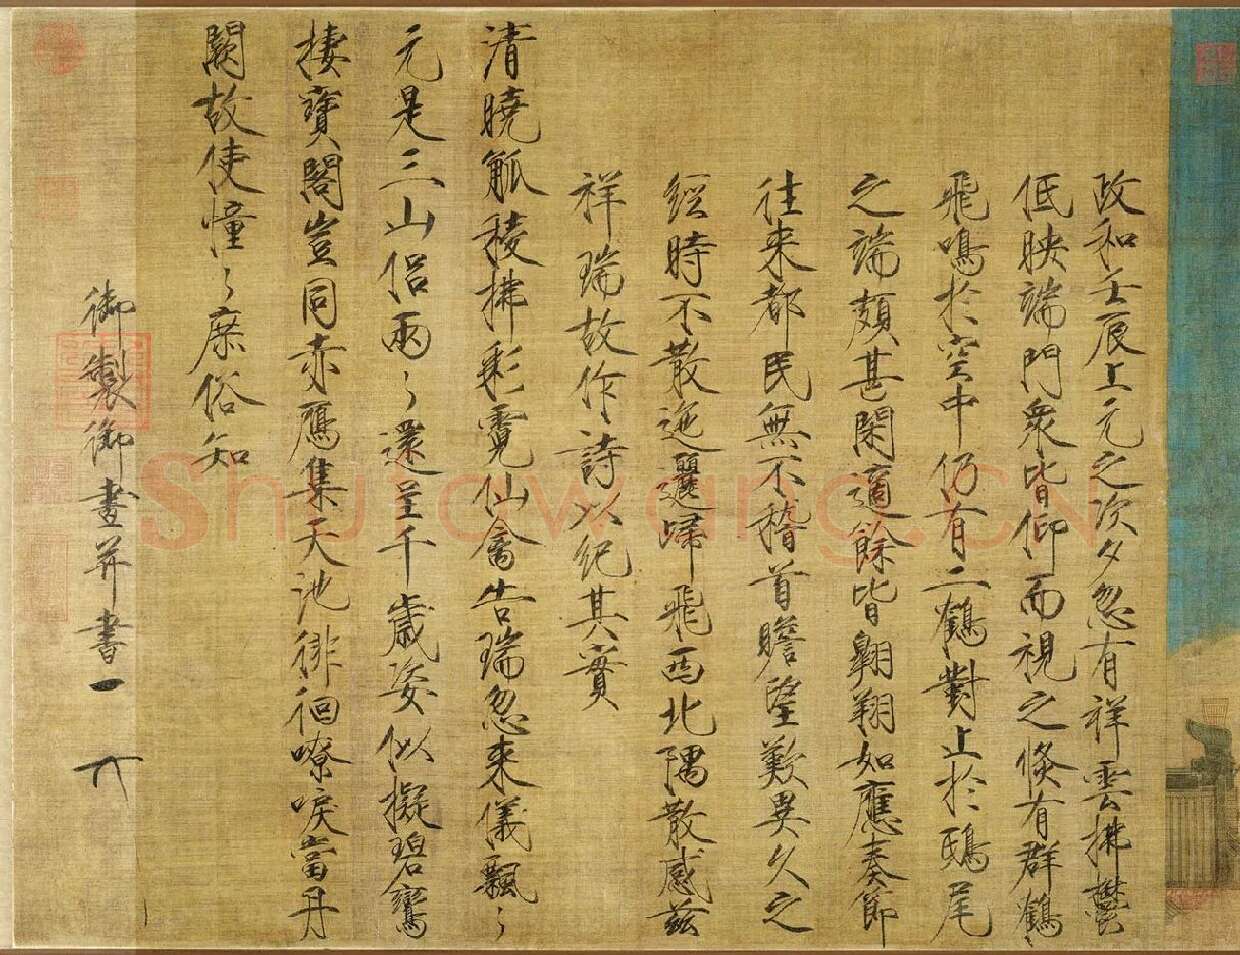 政和壬辰上元之次夕忽有祥雲拂鬱
低映端門衆皆仰而視之倐有群鶴
飛鳴於空中仍有二鶴對止於鴟尾
之端頗甚閑適餘皆翱翔如應奏節
往来都民無不稽首瞻望歎異久之
經時不散迤邐歸飛西北隅散感兹
祥瑞故作詩以紀其實
清曉觚稜拂彩霓仙禽告瑞忽来儀飄〻
元是三山侣兩〻還呈千歲姿似擬碧鸞
棲寶閣豈同赤鴈集天池徘徊嘹唳當丹
闕故使憧〻庶俗知
御製御畫并書
Shufawang.CN